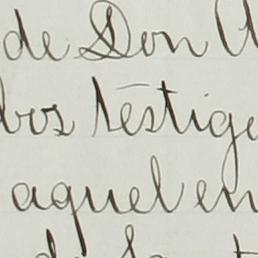 de Don
los testigo
aquel en